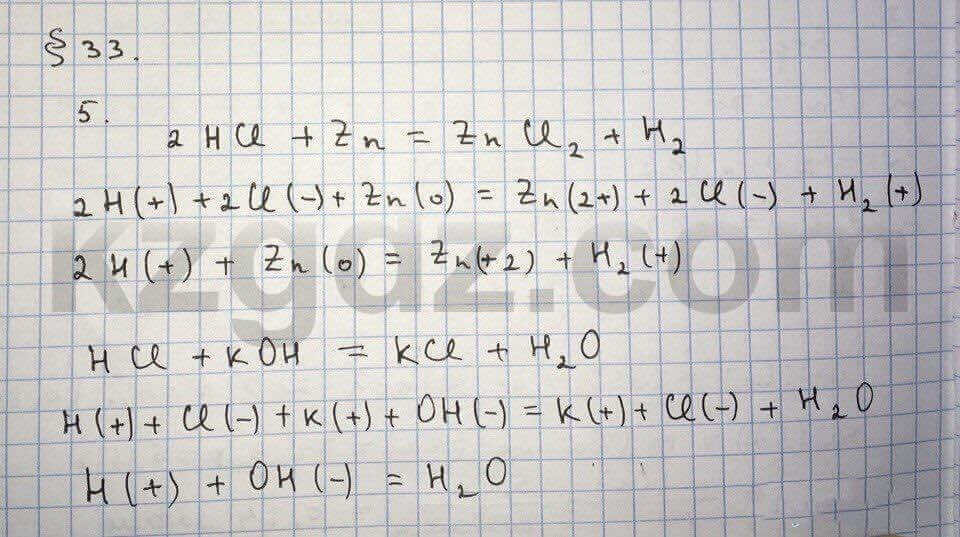 § 33.
5.
2HCl + Zn = ZnCl₂ + H₂
2H(+) + 2Cl(-) + Zn(0) = Zn(2+) + 2Cl(-) + H₂(+)
2H(+) + Zn(0) = Zn(+2) + H₂(+)
kzgdz.com
HCl + KOH = KCl + H₂O
H(+) + Cl(-) + K(+) + OH(-) = K(+) + Cl(-) + H₂O
H(+) + OH(-) = H₂O